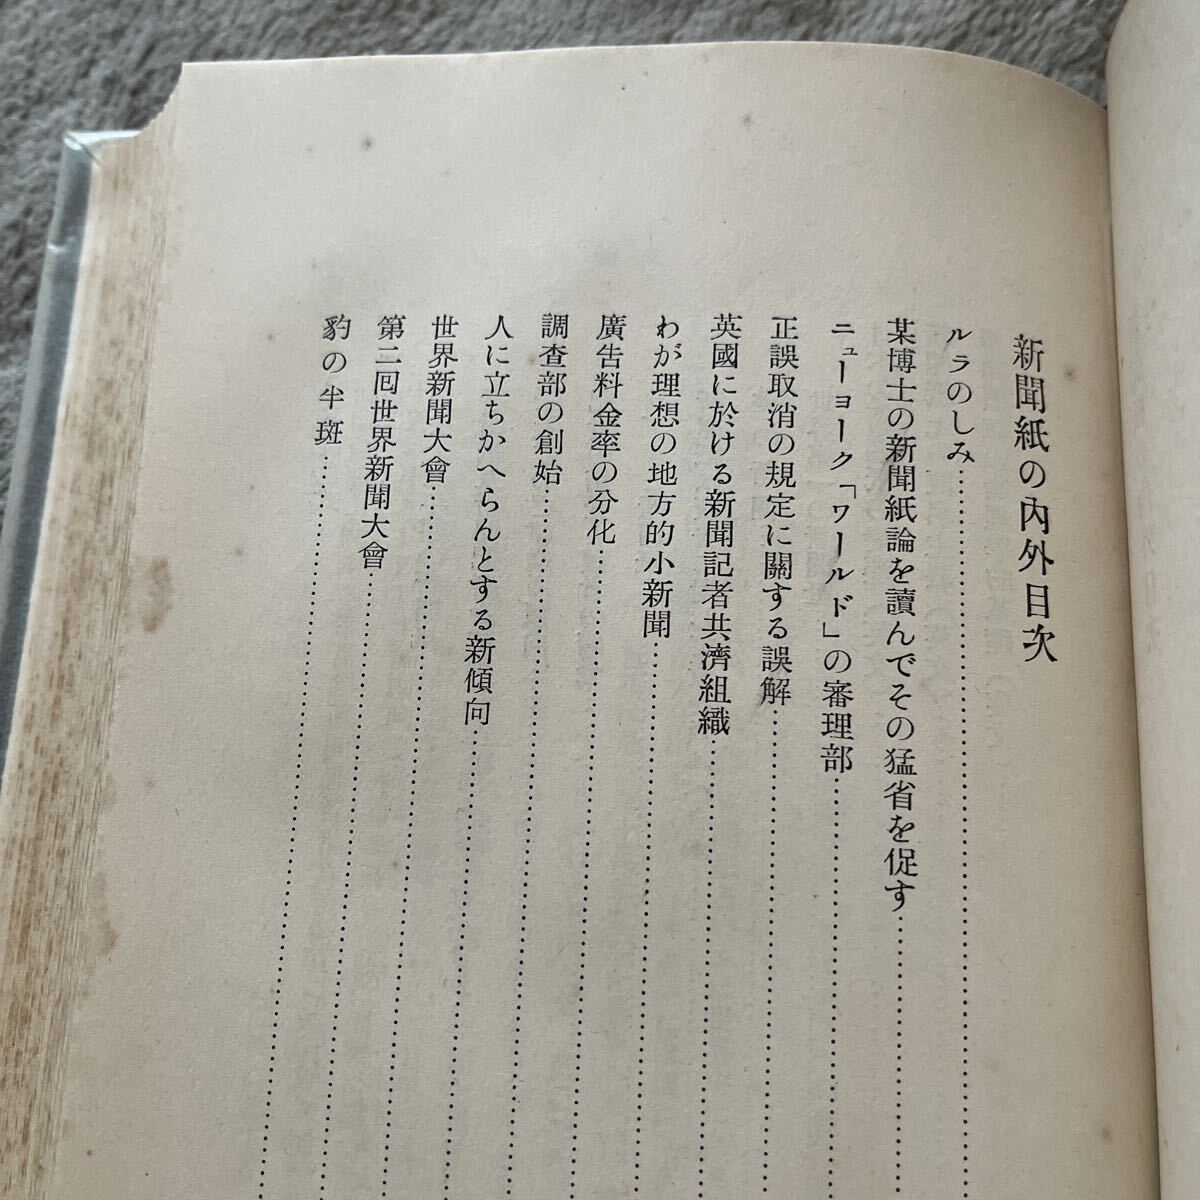 新聞紙の內外目次
ルラのしみ
某博士の新聞紙論を讀んでその猛省を促す
ニューヨーク「ワールド」の審理部
正誤取消の規定に關する誤解
英國に於ける新聞記者共濟組織
わが理想の地方的小新聞
廣吿料金率の分化
調査部の創始
人に立ちかへらんとする新傾向
世界新聞大會
第二回世界新聞大會
豹の半斑